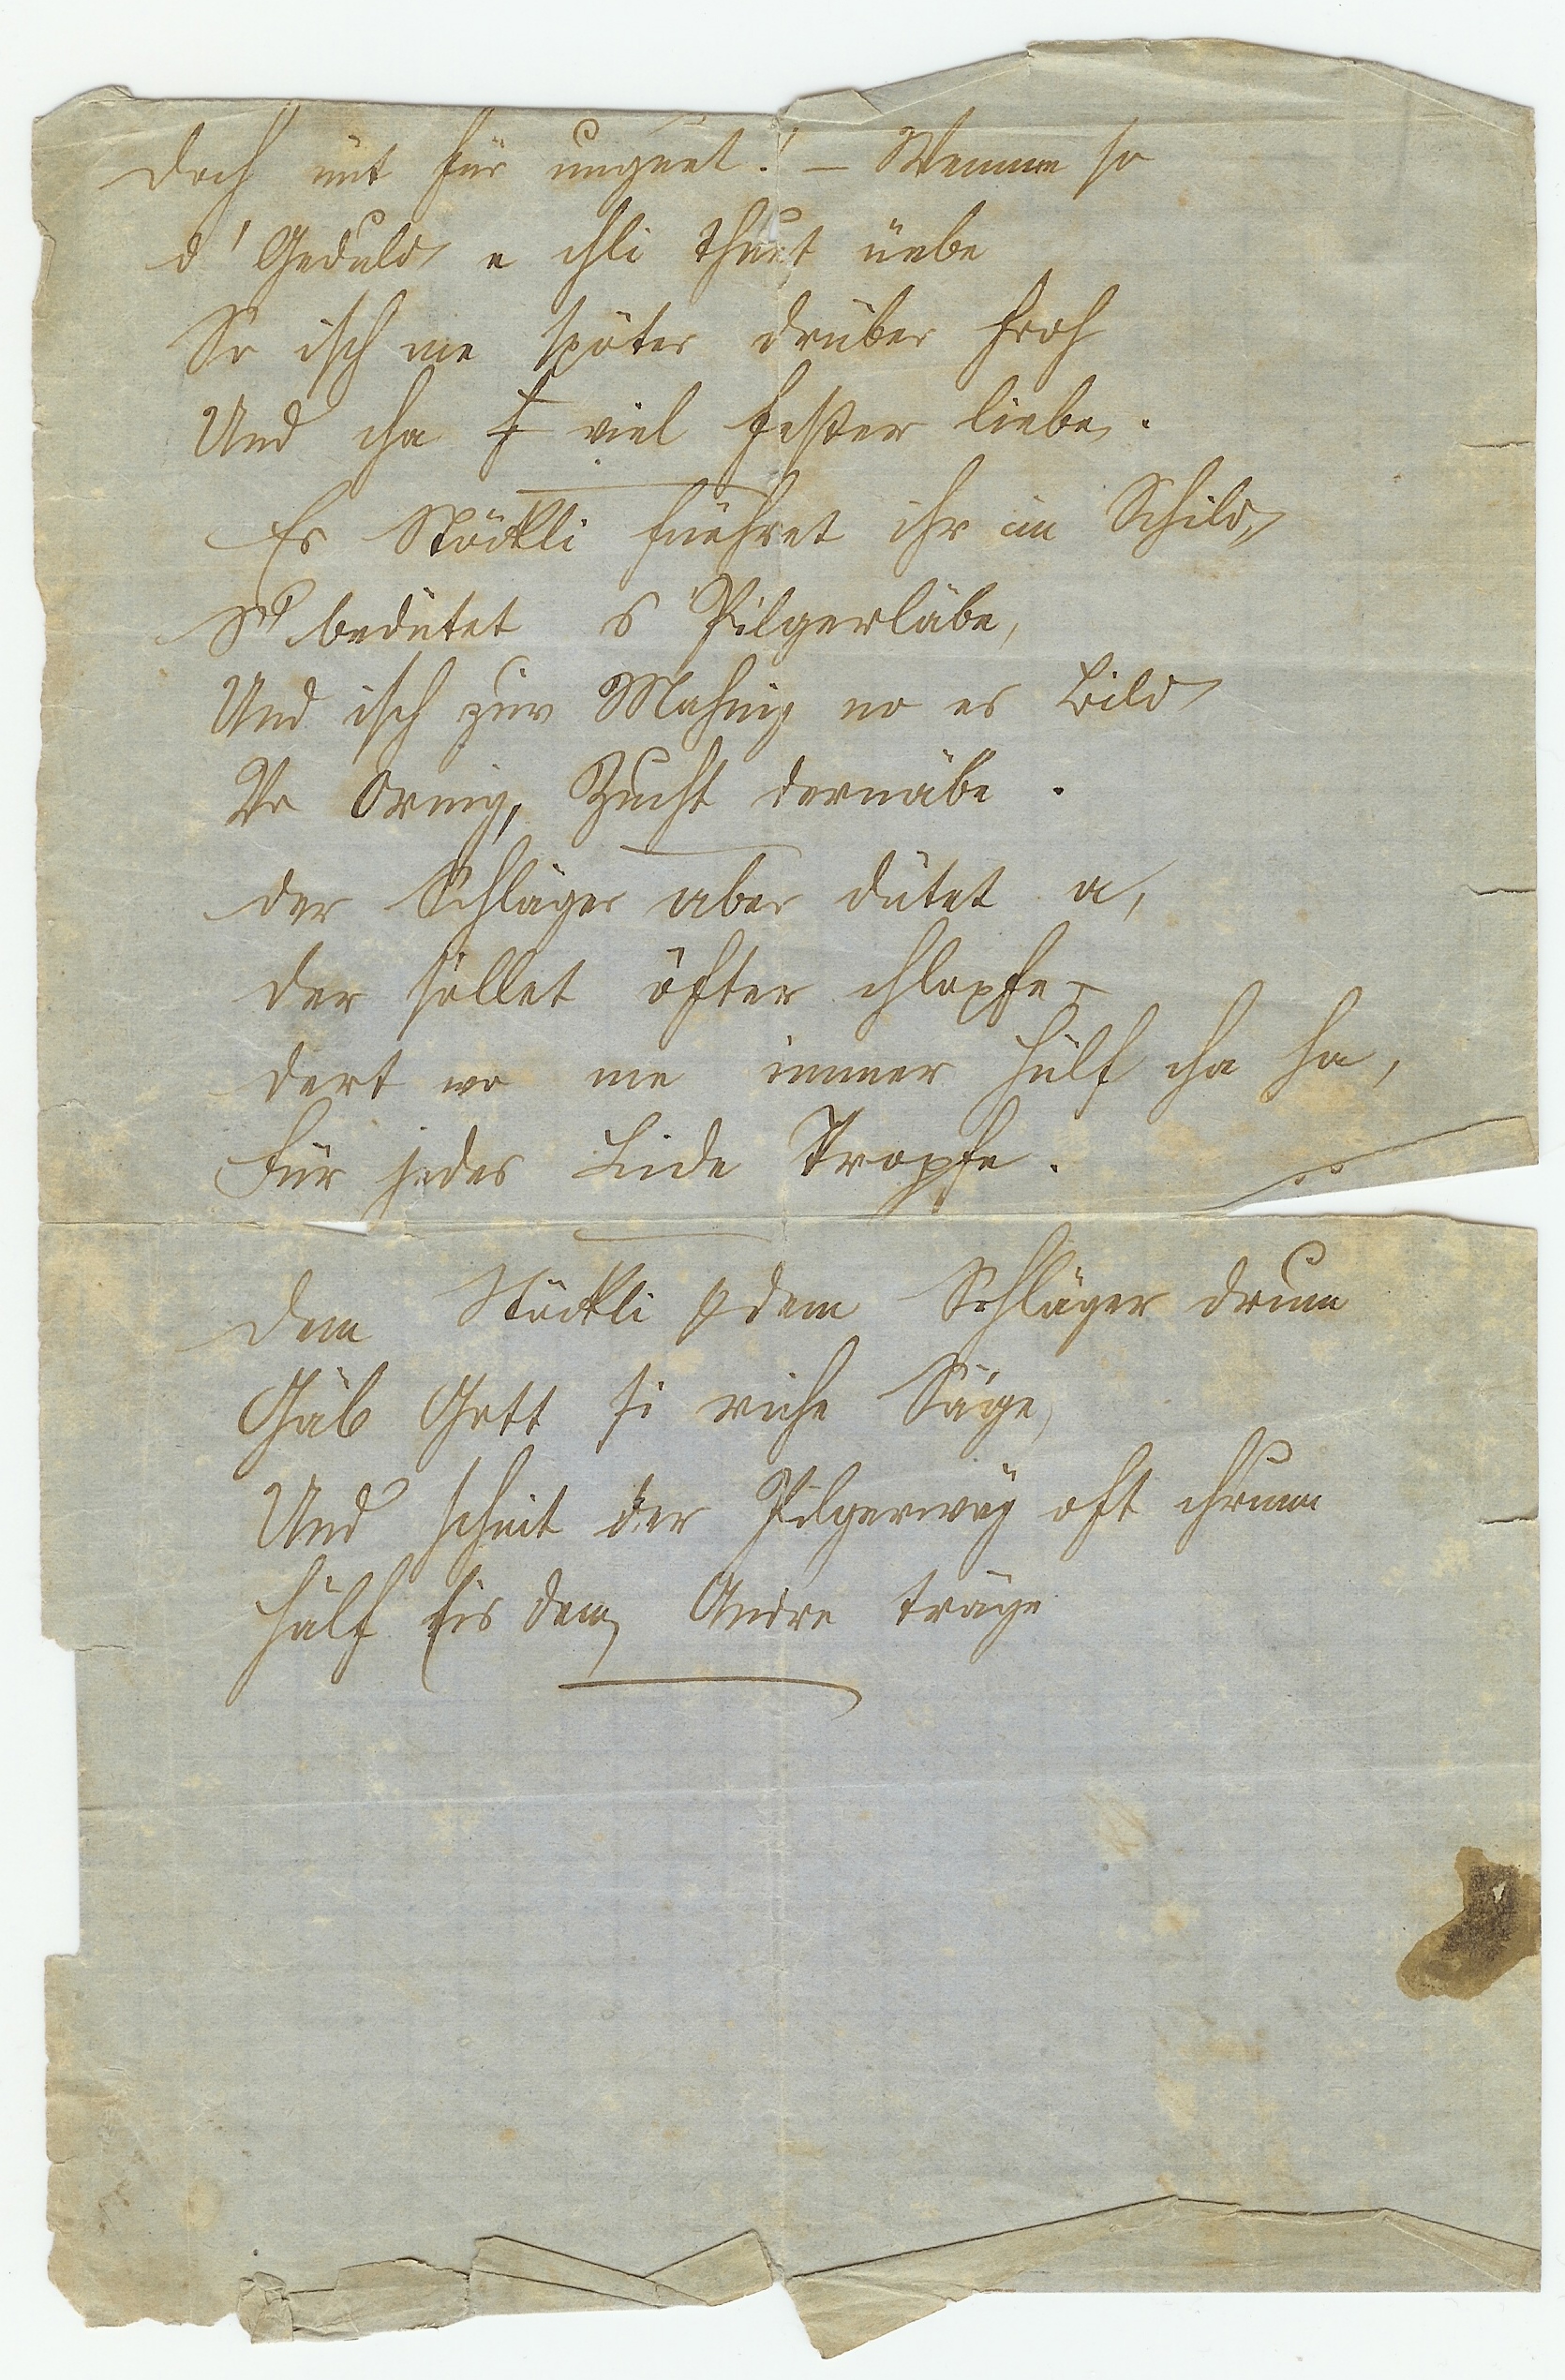 Doch nüt für unguet! – Wemme so
d' Geduld e chli thuet üebe
So isch me später drüber froh
Und cha viel fester liebe.
Es Stöckli füehret ihr im Schild,
S' bedütet s Pilgerläbe,
Und isch zur Mahnig no es Bild
Vo Ornig, Zucht dernäbe.
Der Schläger aber dütet a,
Der söllet öfter chlopfe –
Dert wo me immer Hülf cha ha,
Für jedes Lide Tropfe.
Dem Stöckli & dem Schläger drum
Gäb Gott si riche Säge,
Und schint der Pilgerwäg oft chrumm
Hälf Eis dem Andre träge